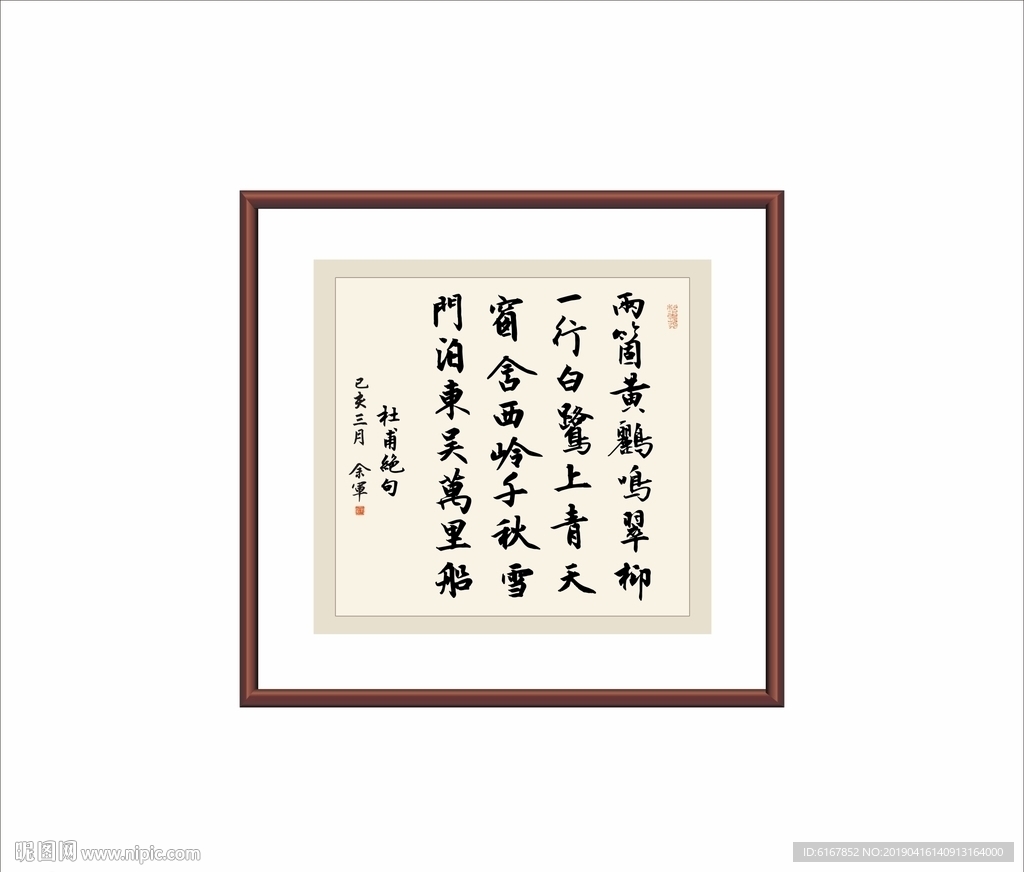 兩箇黃鸝鳴翠柳
一行白鷺上青天
窗含西岭千秋雪
門泊東吴萬里船
杜甫絕句
己亥三月 余軍
昵图网 www.nipic.com
ID:6167852 NO:20190416140913164000